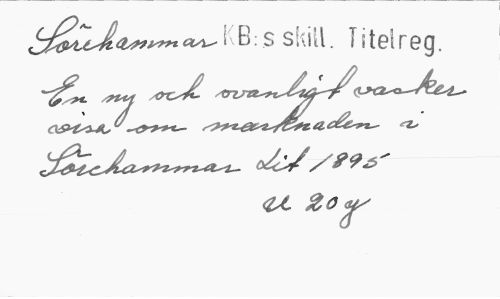 Sörehammar KB:s skill. Titelreg.
En ny och ovanligt vacker
visa om marknaden i
Sörehammar Lit 1895
U 20 y